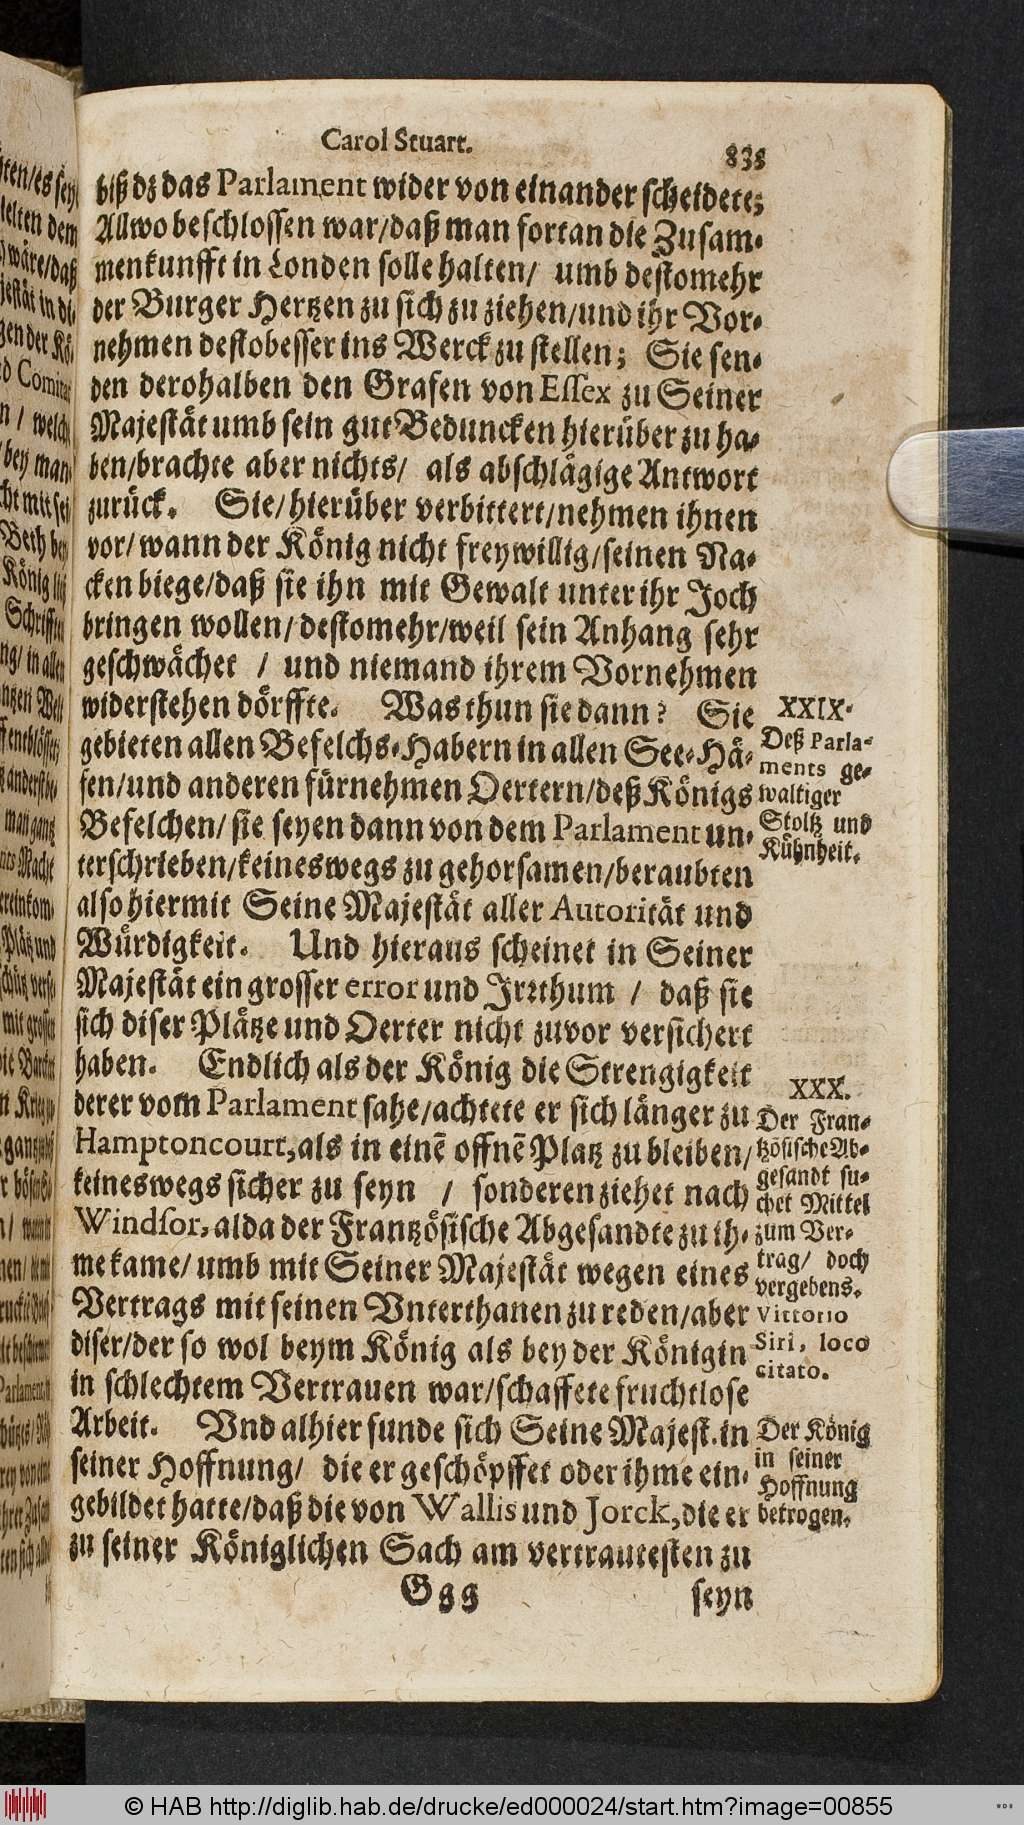 Carol Stuart. 835
biß dz das Parlament wider von einander scheidete;
Allwo beschlossen war/daß man fortan die Zusam-
menkunfft in Londen solle halten/ umb destomehr
der Burger Hertzen zu sich zu ziehen/und ihr Vor-
nehmen destobesser ins Werck zu stellen; Sie sen-
den derohalben den Grafen von Essex zu Seiner
Majestät umb sein gut Beduncken hierüber zu ha-
ben/brachte aber nichts/ als abschlägige Antwort
zurück. Sie/hierüber verbittert/nehmen ihnen
vor/wann der König nicht freywillig/seinen Na-
cken biege/daß sie ihn mit Gewalt unter ihr Joch
bringen wollen/destomehr/weil sein Anhang sehr
geschwächet / und niemand ihrem Vornehmen
widerstehen dörffte. Was thun sie dann? Sie
gebieten allen Befelchs-Habern in allen See-Hä-
fen/und anderen fürnehmen Oertern/deß Königs
Befelchen/sie seyen dann von dem Parlament un-
terschrieben/keineswegs zu gehorsamen/beraubten
also hiermit Seine Majestät aller Autorität und
Würdigkeit. Und hieraus scheinet in Seiner
Majestät ein grosser error und Irrthum / daß sie
sich diser Plätze und Oerter nicht zuvor versichert
haben. Endlich als der König die Strengigkeit
derer vom Parlament sahe/achtete er sich länger zu
Hamptoncourt, als in einē offnē Platz zu bleiben/
keineswegs sicher zu seyn / sonderen ziehet nach
Windsor, alda der Frantzösische Abgesandte zu ih-
me kame/umb mit Seiner Majestät wegen eines
Vertrags mit seinen Vnterthanen zu reden/aber
diser/der so wol beym König als bey der Königin
in schlechtem Vertrauen war/schaffete fruchtlose
Arbeit. Vnd alhier funde sich Seine Majest. in
seiner Hoffnung/ die er geschöpffet oder ihme ein-
gebildet hatte/daß die von Wallis und Jorck, die er
zu seiner Königlichen Sach am vertrautesten zu
Ggg seyn
XXIX.
Deß Parla-
ments ge-
waltiger
Stoltz und
Kühnheit.
XXX.
Der Fran-
tzösische Ab-
gesandt su-
chet Mittel
zum Ver-
trag/ doch
vergebens.
Vittorio
Siri, loco
citato.
Der König
in seiner
Hoffnung
betrogen.
© HAB http://diglib.hab.de/drucke/ed000024/start.htm?image=00855